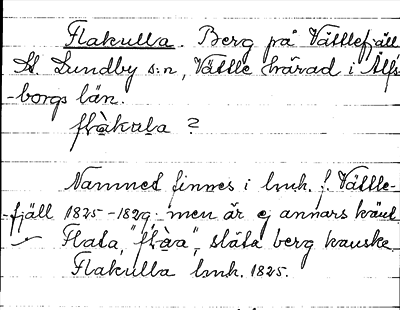 Flakulla. Berg på Vättlefjäll
St. Lundby s:n, Vättle härad i Älfs
-borgs län.
flàkula ?
Namnet finnes i lmh. f. Vättle-
-fjäll 1825-1829 men är ej annars känt
Flata, "flàa", släta berg kanske
Flakulla lmh. 1825.